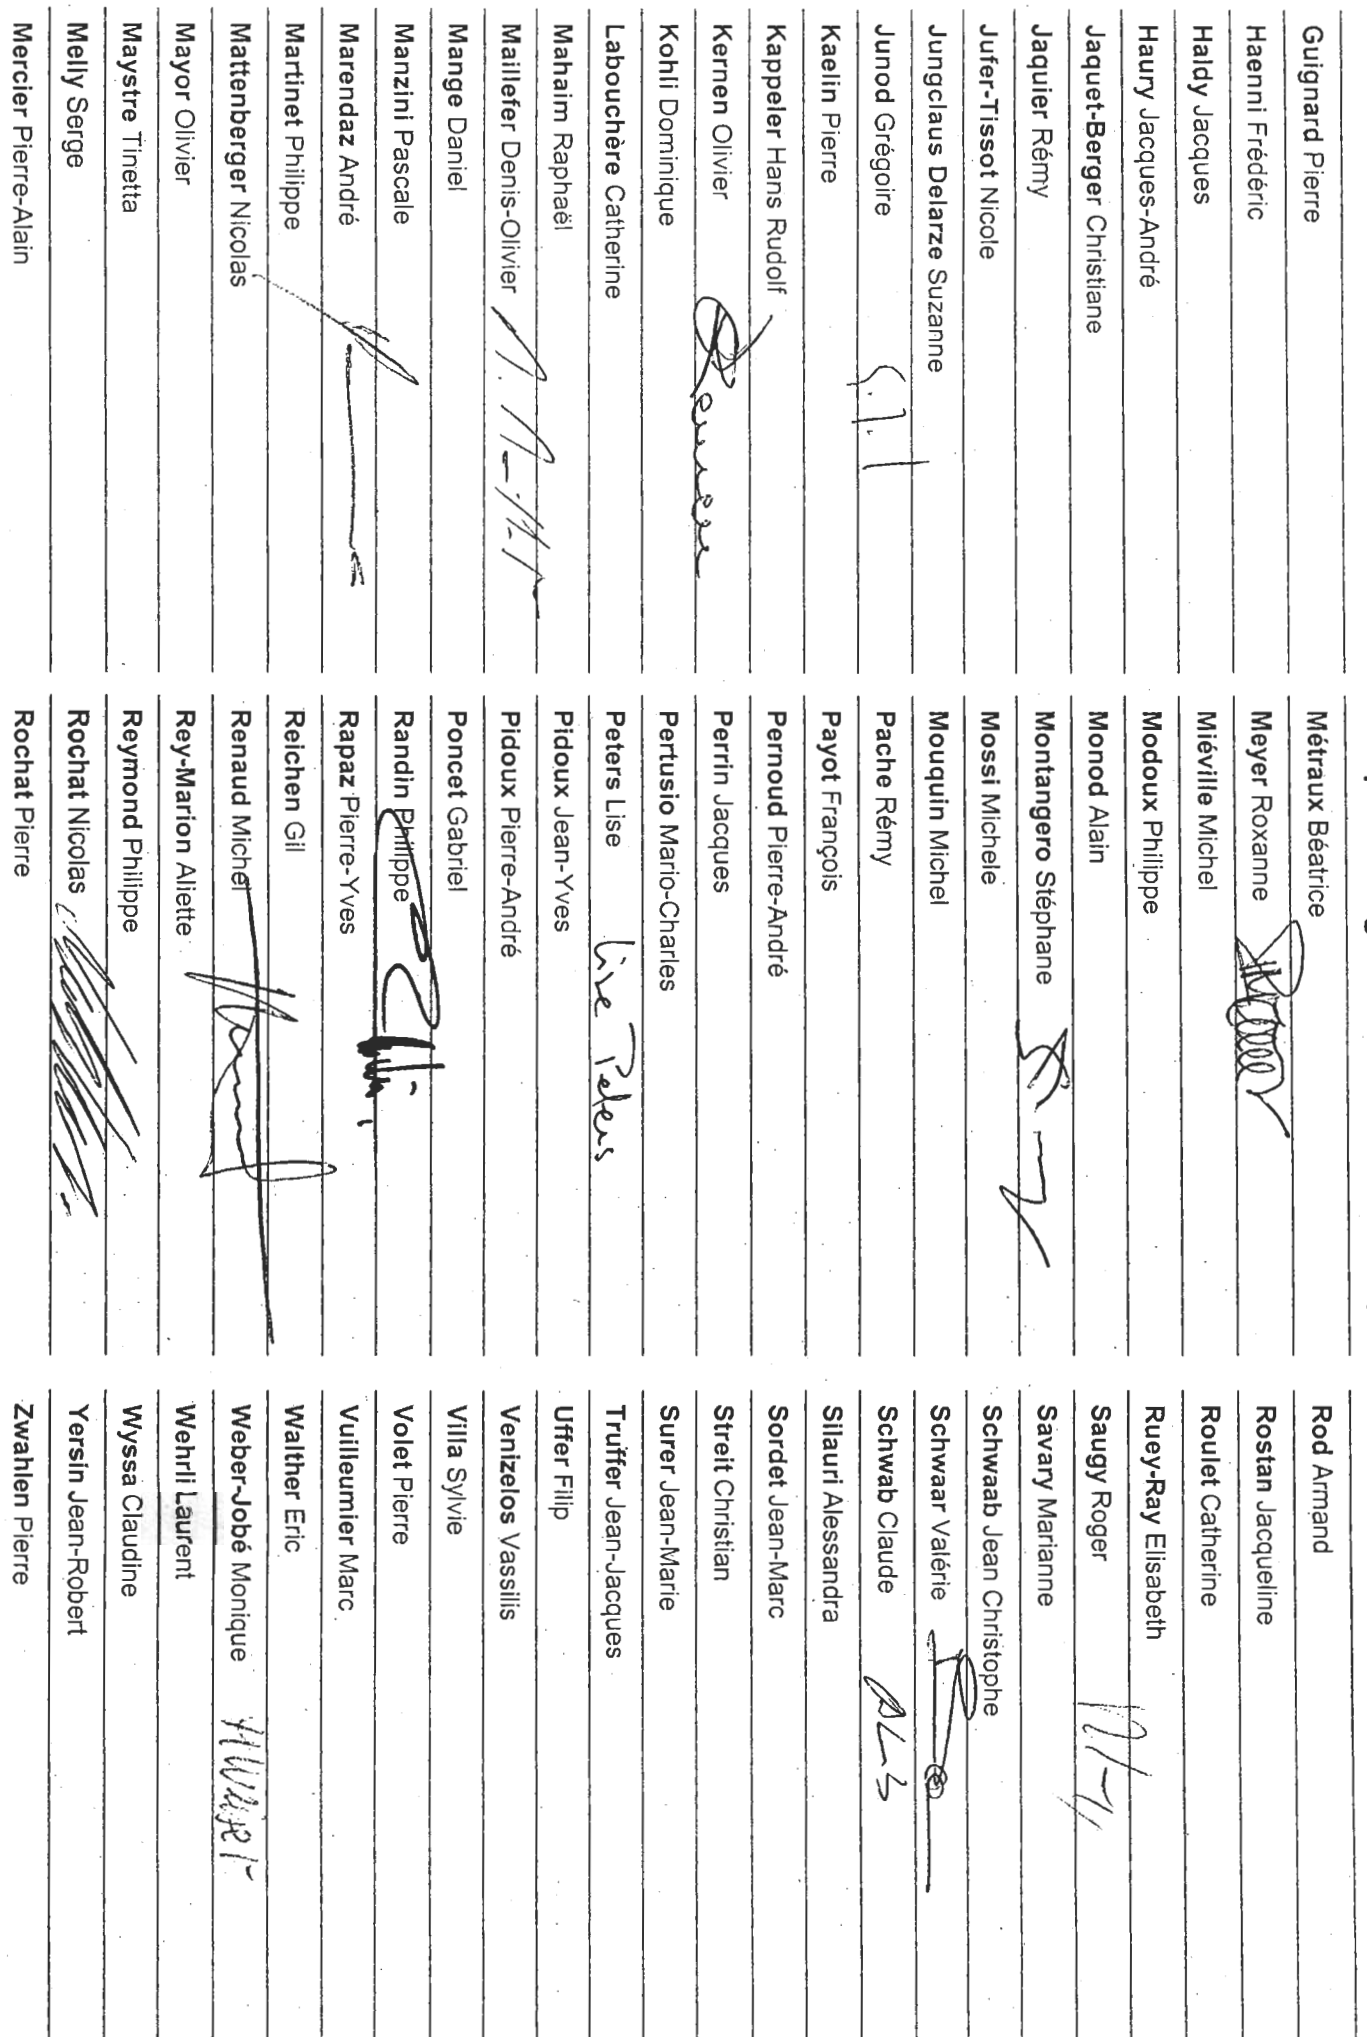 Guignard Pierre
Haenni Frédéric
Haldy Jacques
Haury Jacques-André
Jaquet-Berger Christiane
Jaquier Rémy
Jufer-Tissot Nicole
Jungclaus Delarze Suzanne
Junod Grégoire
Kaelin Pierre
Kappeler Hans Rudolf
Kernen Olivier
Kohli Dominique
Labouchère Catherine
Mahaim Raphaël
Maillefer Denis-Olivier
Mange Daniel
Manzini Pascale
Marendaz André
Martinet Philippe
Mattenberger Nicolas
Mayor Olivier
Maystre Tinetta
Melly Serge
Mercier Pierre-Alain
Métraux Béatrice
Meyer Roxanne
Miéville Michel
Modoux Philippe
Monod Alain
Montangero Stéphane
Mossi Michele
Mouquin Michel
Pache Rémy
Payot François
Pernoud Pierre-André
Perrin Jacques
Pertusio Mario-Charles
Peters Lise Lise Peters
Pidoux Jean-Yves
Pidoux Pierre-André
Poncet Gabriel
Randin Philippe
Rapaz Pierre-Yves
Reichen Gil
Renaud Michel
Rey-Marion Aliette
Reymond Philippe
Rochat Nicolas
Rochat Pierre
Rod Armand
Rostan Jacqueline
Roulet Catherine
Ruey-Ray Elisabeth
Saugy Roger
Savary Marianne
Schwaab Jean Christophe
Schwaar Valérie
Schwab Claude
Silauri Alessandra
Sordet Jean-Marc
Streit Christian
Surer Jean-Marie
Truffer Jean-Jacques
Uffer Filip
Venizelos Vassilis
Villa Sylvie
Volet Pierre
Vuilleumier Marc
Walther Eric
Weber-Jobé Monique
Wehrli Laurent
Wyssa Claudine
Yersin Jean-Robert
Zwahlen Pierre